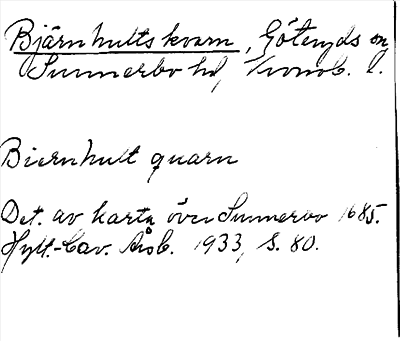 Bjärnhults kvarn, Göteryds sn
Sunnerbo hd, Kronob. l.
Biernhult quarn
Det. av karta över Sunnerbo 1685.
Hylt.-Cav. Årsb. 1933, S. 80.